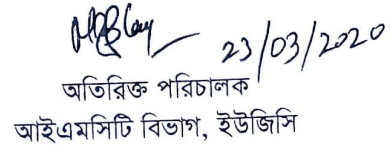 23/03/2020
অতিরিক্ত পরিচালক
আইএমসিটি বিভাগ, ইউজিসি